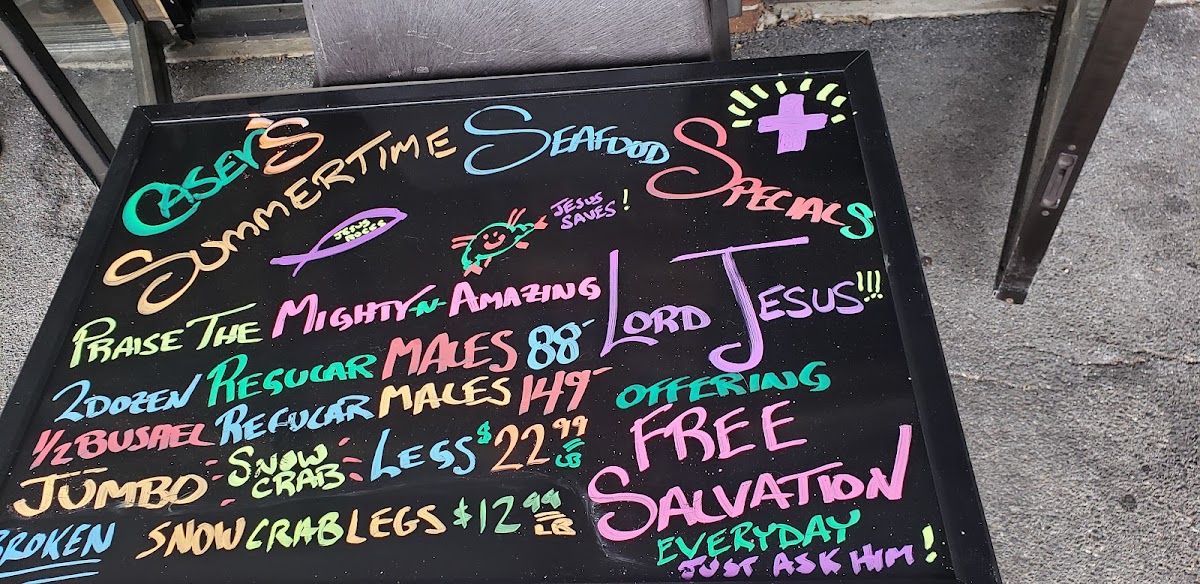 CASEY'S
SUMMERTIME SEAFOOD SPECIALS
JESUS
JESUS
SAVES!
PRAISE THE MIGHTY-N-AMAZING
LORD JESUS!!!
2 DOZEN REGULAR MALES 88-
1/2 BUSHEL REGULAR MALES 149-
JUMBO SNOW CRAB LEGS $22.99 LB
BROKEN SNOW CRAB LEGS $12.99 LB
OFFERING
FREE
SALVATION
EVERYDAY
JUST ASK HIM!